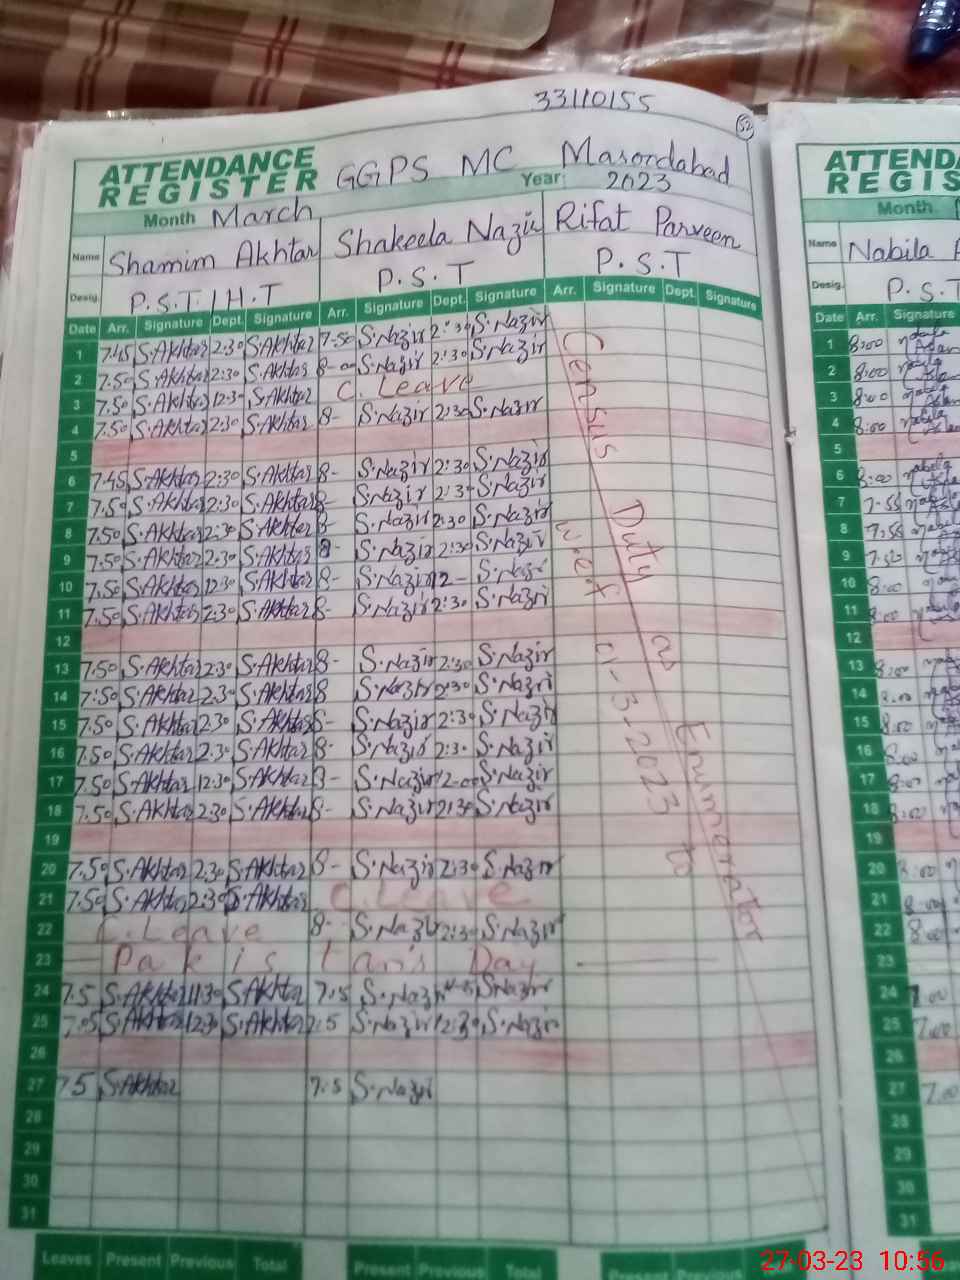 33110155
52
ATTENDANCE REGISTER GGPS MC Masoodabad
Year: 2023
Month March
Name Shamim Akhtar Shakeela Nazir Rifat Parveen
Desig. P.S.T / H.T P.S.T P.S.T
Date Arr. Signature Dept. Signature Arr. Signature Dept. Signature Arr. Signature Dept. Signature
1 7.45 S.Akhtar 2:30 S.Akhtar 7-50 S.Nazir 2:30 S.Nazir
2 7.50 S.Akhtar 2:30 S.Akhtar 8-00 S.Nazir 2:30 S.Nazir
3 7.50 S.Akhtar 12:30 S.Akhtar C. Leave
4 7.50 S.Akhtar 2:30 S.Akhtar 8- S.Nazir 2:30 S.Nazir
5
6 7.45 S.Akhtar 2:30 S.Akhtar 8- S.Nazir 2:30 S.Nazir
7 7.50 S.Akhtar 2:30 S.Akhtar 8- S.Nazir 2:3- S.Nazir
8 7.50 S.Akhtar 2:30 S.Akhtar 8- S.Nazir 2:30 S.Nazir
9 7.50 S.Akhtar 2.30 S.Akhtar 8- S.Nazir 2:30 S.Nazir
10 7.50 S.Akhtar 12:30 S.Akhtar 8- S.Nazir 12- S.Nazir
11 7.50 S.Akhtar 2:30 S.Akhtar 8- S.Nazir 2:30 S.Nazir
12
13 7.50 S.Akhtar 2:30 S.Akhtar 8- S.Nazir 2:30 S.Nazir
14 7:50 S.Akhtar 2.30 S.Akhtar 8 S.Nazir 2:30 S.Nazir
15 7.50 S.Akhtar 2.30 S.Akhtar 8- S.Nazir 2:30 S.Nazir
16 7.50 S.Akhtar 2.30 S.Akhtar 8- S.Nazir 2:30 S.Nazir
17 7.50 S.Akhtar 12:30 S.Akhtar 8- S.Nazir 12-00 S.Nazir
18 7.50 S.Akhtar 2.30 S.Akhtar 8- S.Nazir 2:30 S.Nazir
19
20 7.50 S.Akhtar 2:30 S.Akhtar 8- S.Nazir 2:30 S.Nazir
21 7.50 S.Akhtar 2:30 S.Akhtar C. Leave
22 C. Leave 8- S.Nazir 2:30 S.Nazir
23 Pakistan's Day
24 7.5 S.Akhtar 11:30 S.Akhtar 7:5 S.Nazir S.Nazir
25 7.05 S.Akhtar 12:30 S.Akhtar 7:5 S.Nazir 12:30 S.Nazir
26
27 7.5 S.Akhtar 7:5 S.Nazir
28
29
30
31
Census Duty as Enumerator
w.e.f 01-3-2023 to
Leaves Present Previous Total Present Previous Total
ATTENDA
REGIS
Month
Name Nabila
Desig. P.S.T
Date Arr. Signature
1 8:00
2 8:00
3 8:00
4 8:00
5
6 8:00
7 7-55
8 7-55
9 7.50
10 8:00
11 8:00
12
13 8:00
14 8.00
15 8:00
16 8:00
17 8:00
18 8:00
19
20 8:00
21 8:00
22 8:00
23
24 7.00
25 7.00
26
27 7.00
28
29
30
31
27-03-23 10:56